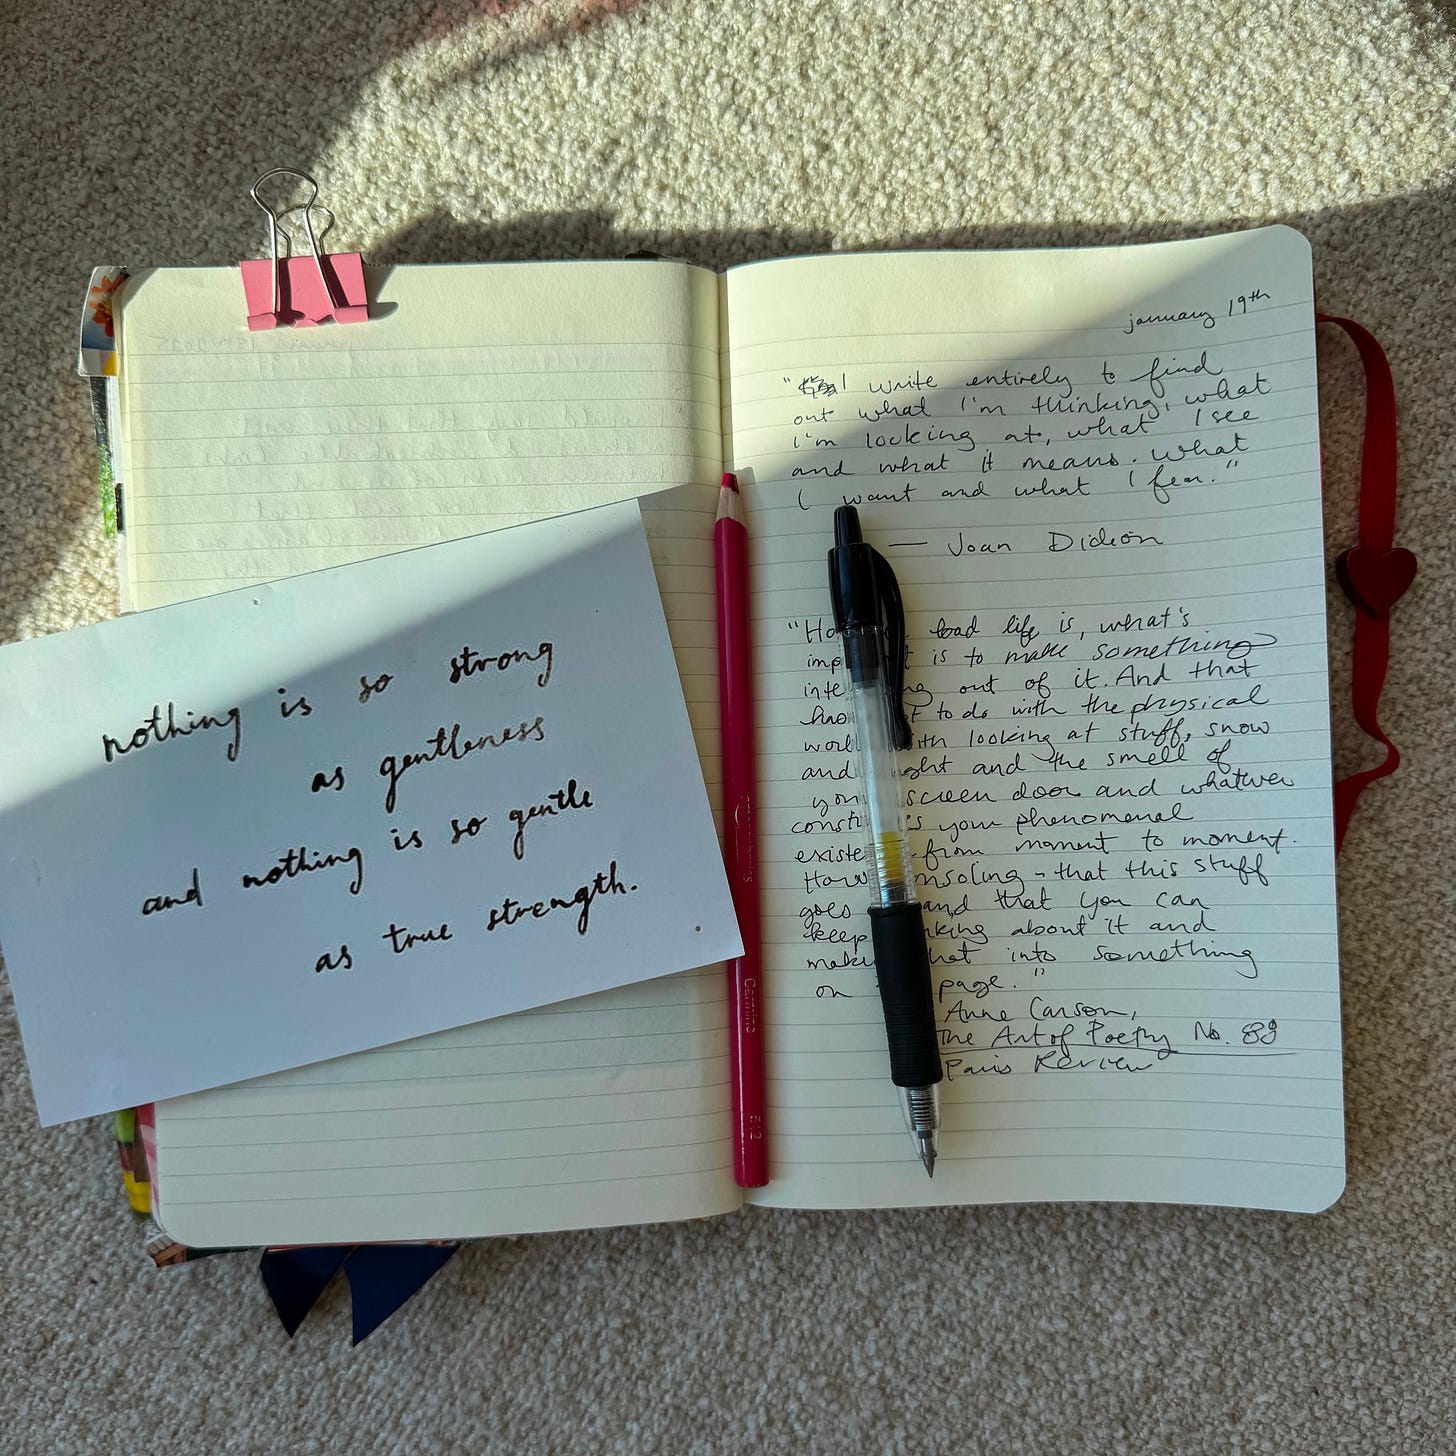 nothing is so strong
as gentleness
and nothing is so gentle
as true strength.
january 19th
" I write entirely to find
out what I'm thinking, what
I'm looking at, what I see
and what it means. What
I want and what I fear."
— Joan Didion
"Ho bad life is, what's
imp t is to make something
inte ng out of it. And that
has t to do with the physical
worl with looking at stuff, snow
and ght and the smell of
your screen door and whatever
constit s your phenomenal
existe from moment to moment.
How nsoling - that this stuff
goes and that you can
keep nking about it and
maki hat into something
on page."
Anne Carson,
The Art of Poetry No. 88
Paris Review
Carmine
512